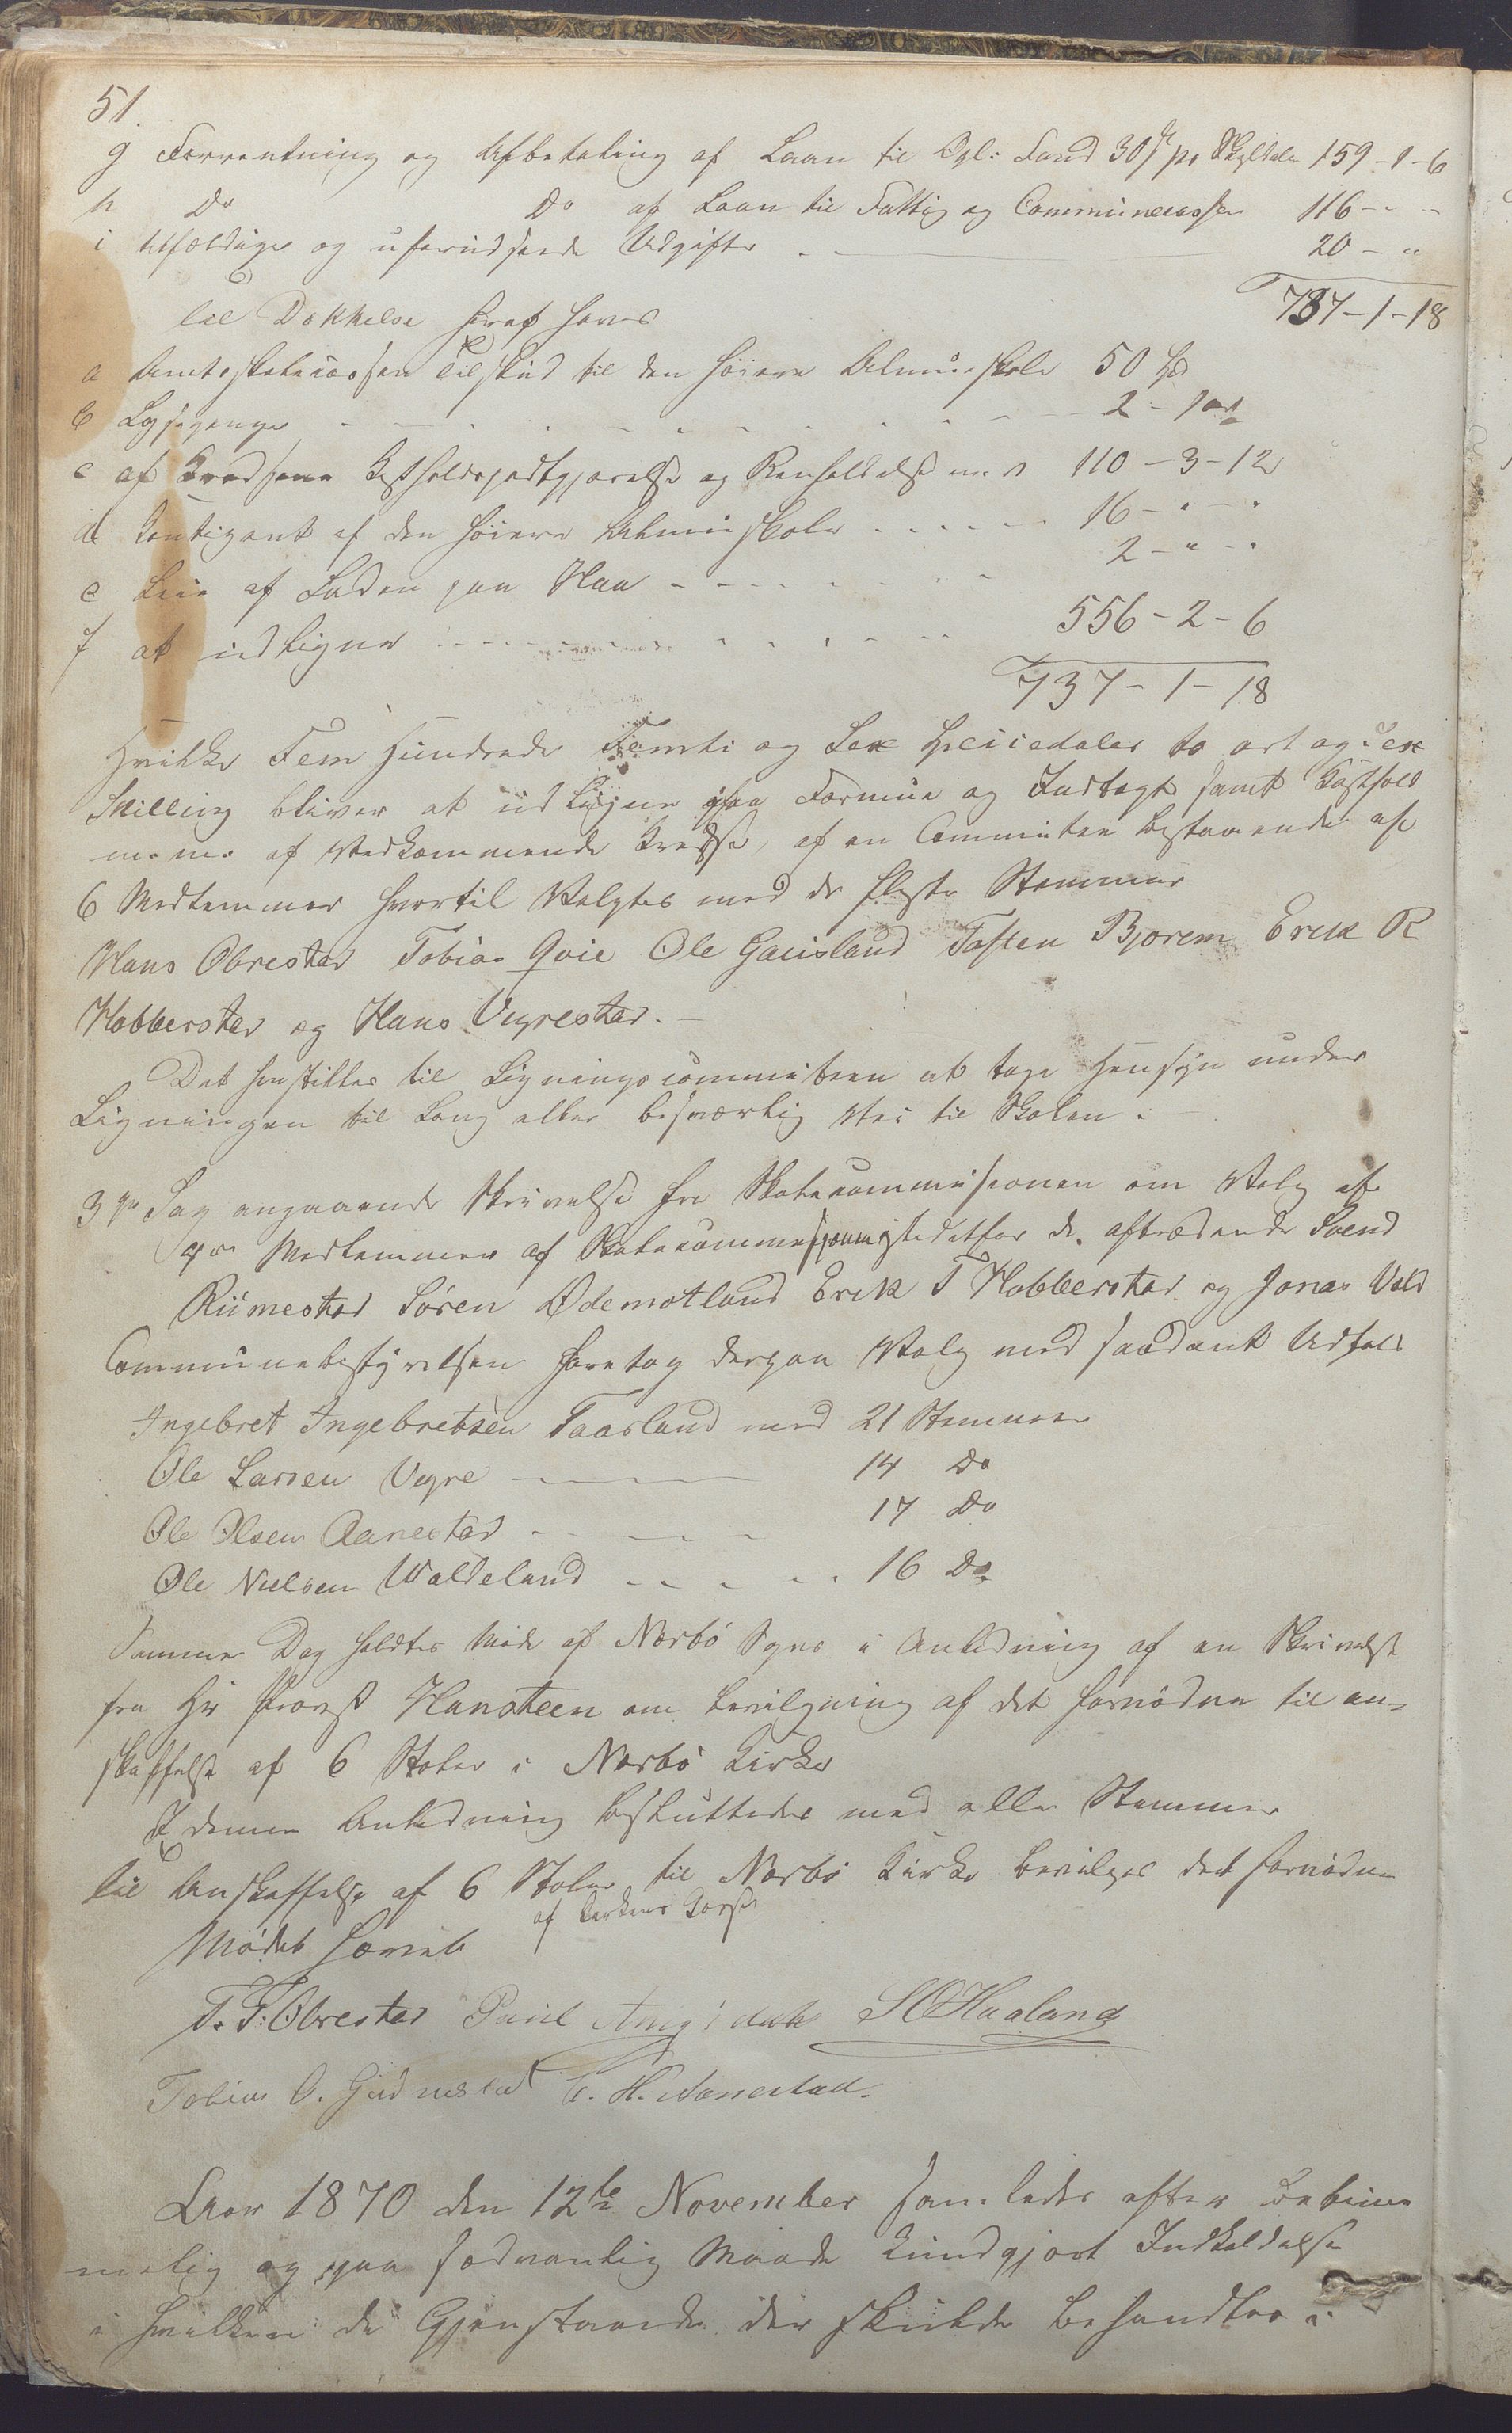 51.
g Forrentning og Afbetaling af Laan til Opl: Fond 30 ß pr Skylddaler 159-1-6
h Do Do af Laan til Fattig og Communecassen 116 - " -
i Tilfældige og uforudseede Udgifter 20 - "
737-1-18
Til Dækkelse heraf haves
a Amtsskolecassen Tilskud til den høiere Almueskole 50 Spd
b Lysepenge 2 - 1 ort
c af Kredsene Kostholdsgodtgjørelse og Renholdelse m. v 110-3-12
d Contigent af den høiere Almueskole 16 - " - "
e Leie af Laden paa Haa 2 - " - "
f at udligne 556-2-6
737-1-18
Hvilke Fem Hundrede Femti og Sex Speciedaler to ort og sex
Skilling bliver at udligne paa Formue og Indtægt samt Kosthold
m. m. af Vedkommende Kredse, af en Committee bestaaende af
6 Medlemmer hvortil Valgtes med de fleste Stemmer
Hans Obrestad Tobias Qvie Ole Gausland Tosten Bjorem Erik R
Hobberstad og Hans Vigrestad. -
Det henstilles til Ligningscommiteen at tage Hensyn under
Ligningen til Lang eller besværlig Vei til Skolen.
3die Sag angaaende Skrivelse fra Skolecommisionen om Valg af
4re Medlemmer af Skolecommissionen istedetfor de aftrædende Svend
Rimestad Søren Ødemotland Erik T Hobberstad og Jonas Vold
Communebestyrelsen foretog derpaa Valg med saadant Udfald
Ingebret Ingebretsen Taarland med 21 Stemmer
Ole Larsen Vigre 14 Do
Ole Olsen Aanestad 17 Do
Ole Nielsen Waldeland 16 Do
Samme Dag holdtes Møde af Nærbø Sogn i Anledning af en Skrivelse
fra Hr Provst Hansteen om bevilgning af det fornødne til an-
skaffelse af 6 Stoler i Nærbø Kirke
I denne Anledning besluttedes med alle Stemmer
Til Anskaffelse af 6 Stoler til Nærbø Kirke bevilges det fornødne
af Kirkens Casse
Mødet hævet
T. T. Obrestad Paul S O Haaland
Tobias O. Gudmestad O. H. Aanestad.
Aar 1870 den 12te November samledes efter betime-
melig og paa sædvanlig Maade kundgjort Indkaldelse
i hvilken de Gjenstande der skulde behandles i